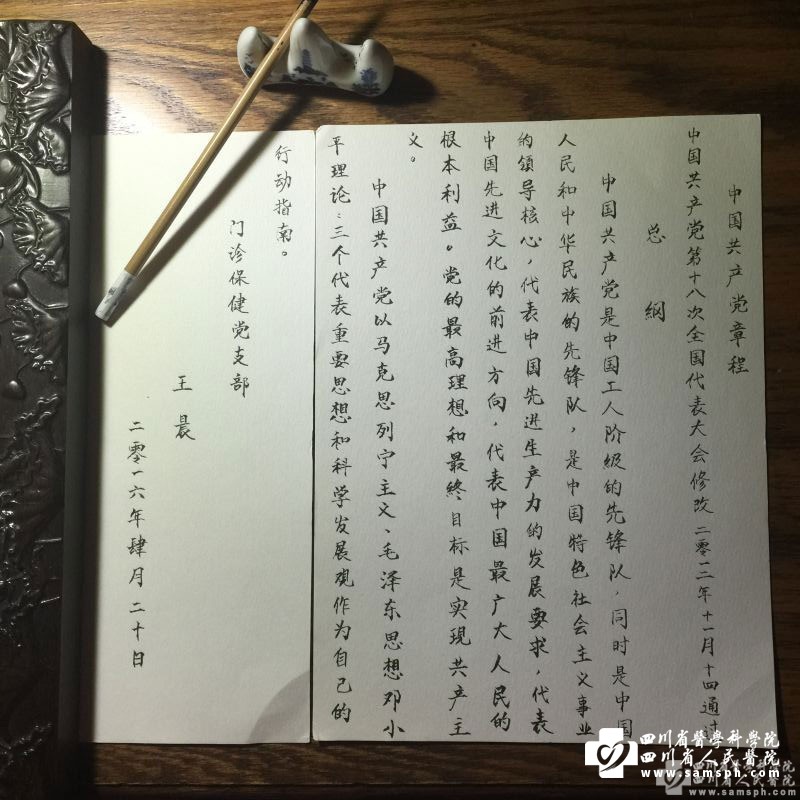 中国共产党章程
中国共产党第十八次全国代表大会修改 二零一二年十一月十四通过
总 纲
中国共产党是中国工人阶级的先锋队，同时是中国
人民和中华民族的先锋队，是中国特色社会主义事业
的领导核心，代表中国先进生产力的发展要求，代表
中国先进文化的前进方向，代表中国最广大人民的
根本利益。党的最高理想和最终目标是实现共产主
义。
中国共产党以马克思列宁主义、毛泽东思想邓小
平理论：三个代表重要思想和科学发展观作为自己的
行动指南。
门诊保健党支部
王晨
二零一六年肆月二十日
四川省醫學科學院
四川省人民醫院
www.samsph.com
四川省醫學科學院
四川省人民醫院
www.samsph.com